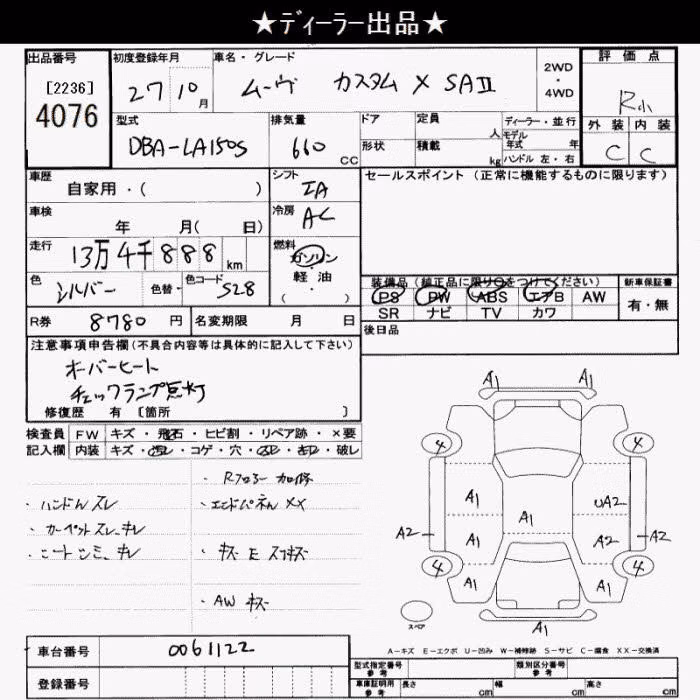 ★ディーラー出品★
出品番号
[2236]
4076
初度登録年月
27 10 月
車名・グレード
ムーヴ カスタム X SAⅡ
2WD
・
4WD
評価点
R小
外装 内装
C C
型式
DBA-LA150S
排気量
660 CC
ドア
形状
定員
人
積載
kg
ディーラー・並行
モデル
年式 年
ハンドル 左・右
車歴
自家用・( )
シフト
IA
セールスポイント(正常に機能するものに限ります)
車検
年 月( 日)
冷房
AC
走行
13万4千888 km
燃料
ガソリン
・
軽油
( )
色
シルバー
色替・
色コード
S28
装備品(純正品に限り○をつけてください)
PS PW ABS エアB AW
SR ナビ TV カワ
新車保証書
有・無
R券 8780 円
名変期限 月 日
後日品
注意事項申告欄(不具合内容等は具体的に記入して下さい)
オーバーヒート
チェックランプ点灯
修復歴 有 [箇所 ]
検査員 FW キズ・飛石・ヒビ割・リペア跡・×要
記入欄 内装 キズ・汚レ・コゲ・穴・スレ・キレ・破レ
・ハンドルスレ
・カーペットスレ、キレ
・シートシミ、キレ
・Rフロアー加修
・エンドパネルXX
・キズ E スリキズ
・AW キズ
A1 A1
4 4
A1 UA2
A1
A2 A1 A2 A2
4 4
A1 A1
スペア
A1
A-キズ E-エクボ U-凹み W-補修跡 S-サビ C-腐食 XX-交換済
車台番号 0061122
登録番号
型式指定番号
参考
類別区分番号
参考
車庫証明用
参考
長さ cm 幅 cm 高さ cm